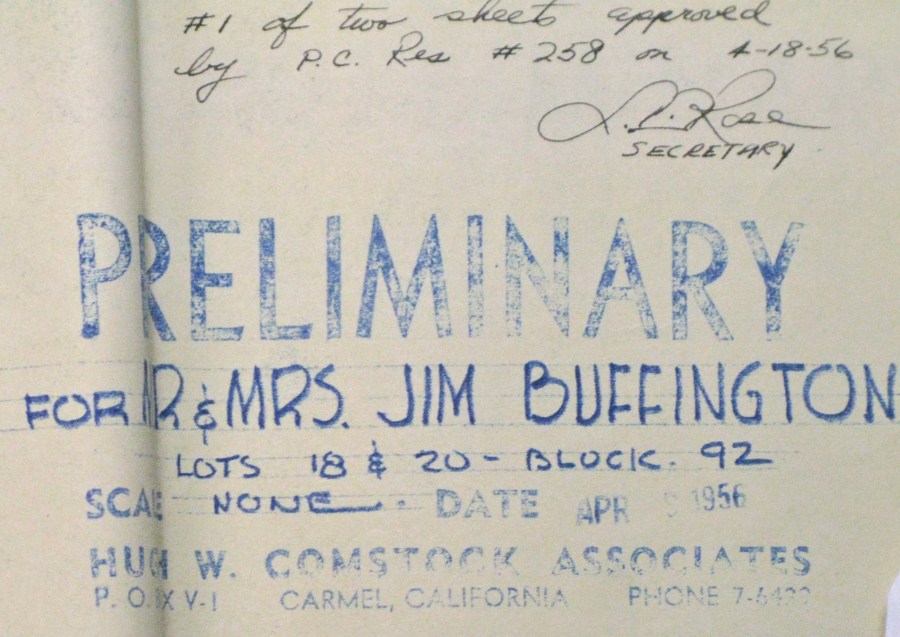 #1 of two sheets approved
by P.C. Res #258 on 4-18-56
SECRETARY
PRELIMINARY
FOR MR & MRS. JIM BUFFINGTON
LOTS 18 & 20 - BLOCK. 92
SCALE NONE DATE APR 1956
HUGH W. COMSTOCK ASSOCIATES
P. O. BOX Y-1 CARMEL, CALIFORNIA PHONE